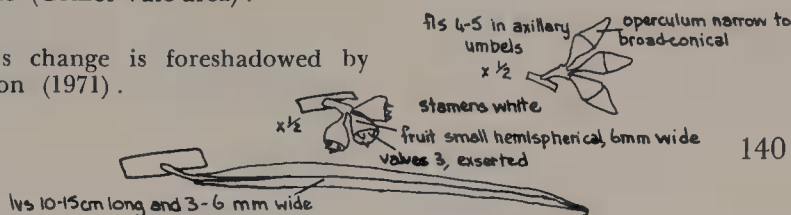 s change is foreshadowed by
on (1971).
fls 4-5 in axillary
umbels
x ½
operculum narrow to
broad-conical
x ½
stamens white
fruit small hemispherical, 6mm wide
valves 3, exserted
140
lvs 10-15cm long and 3-6 mm wide